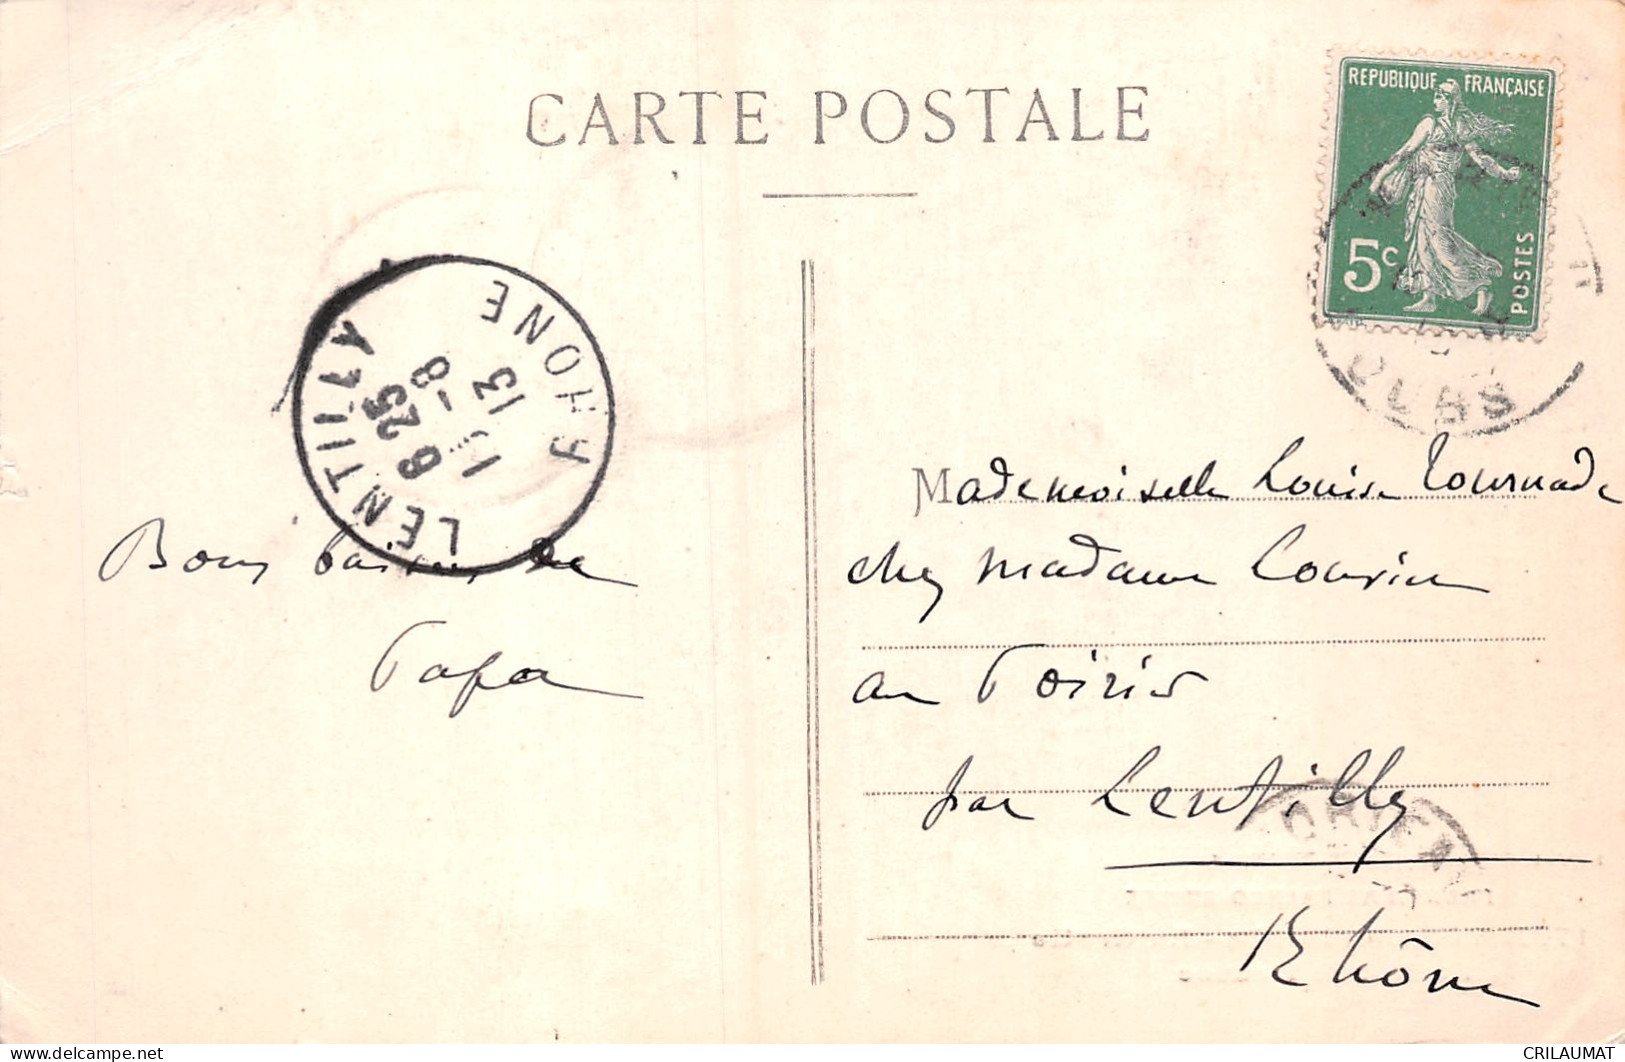 CARTE POSTALE
REPUBLIQUE FRANÇAISE
5c
POSTES
DOUBS
LENTILLY
RHONE
6 25
8-8
13
Bons baisers de
Papa
Mademoiselle Louise Tournade
chez madame
au Poirier
par Lentilly
Rhône
CRILAUMAT